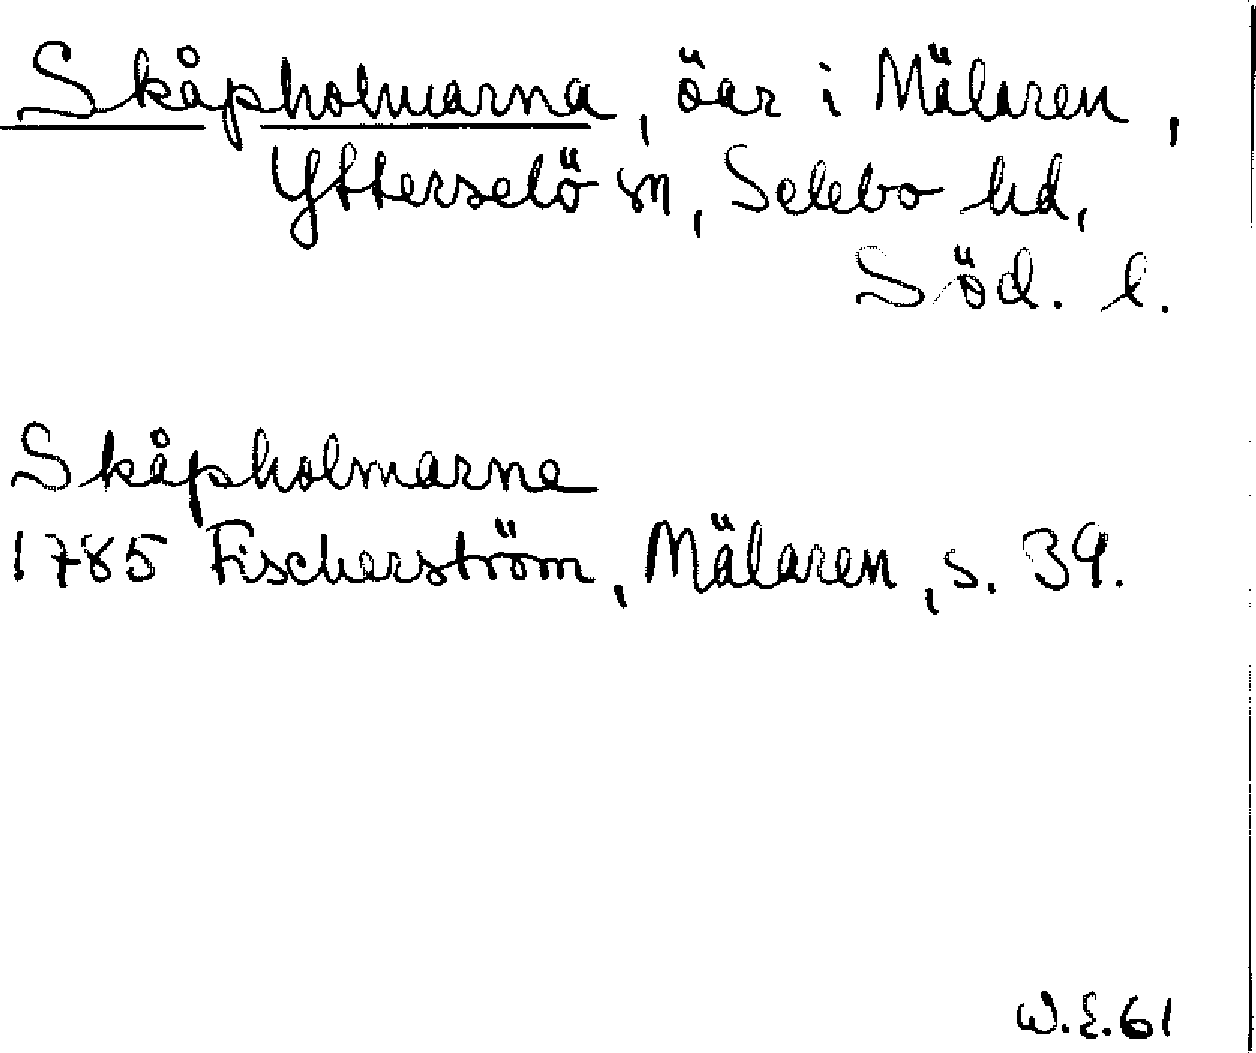 Skåpholmarna, öar i Mälaren,
Ytterselö sn, Selebo hd,
Söd. l.
Skåpholmarne
1785 Fischerström, Mälaren, s. 39.
W.E. 61